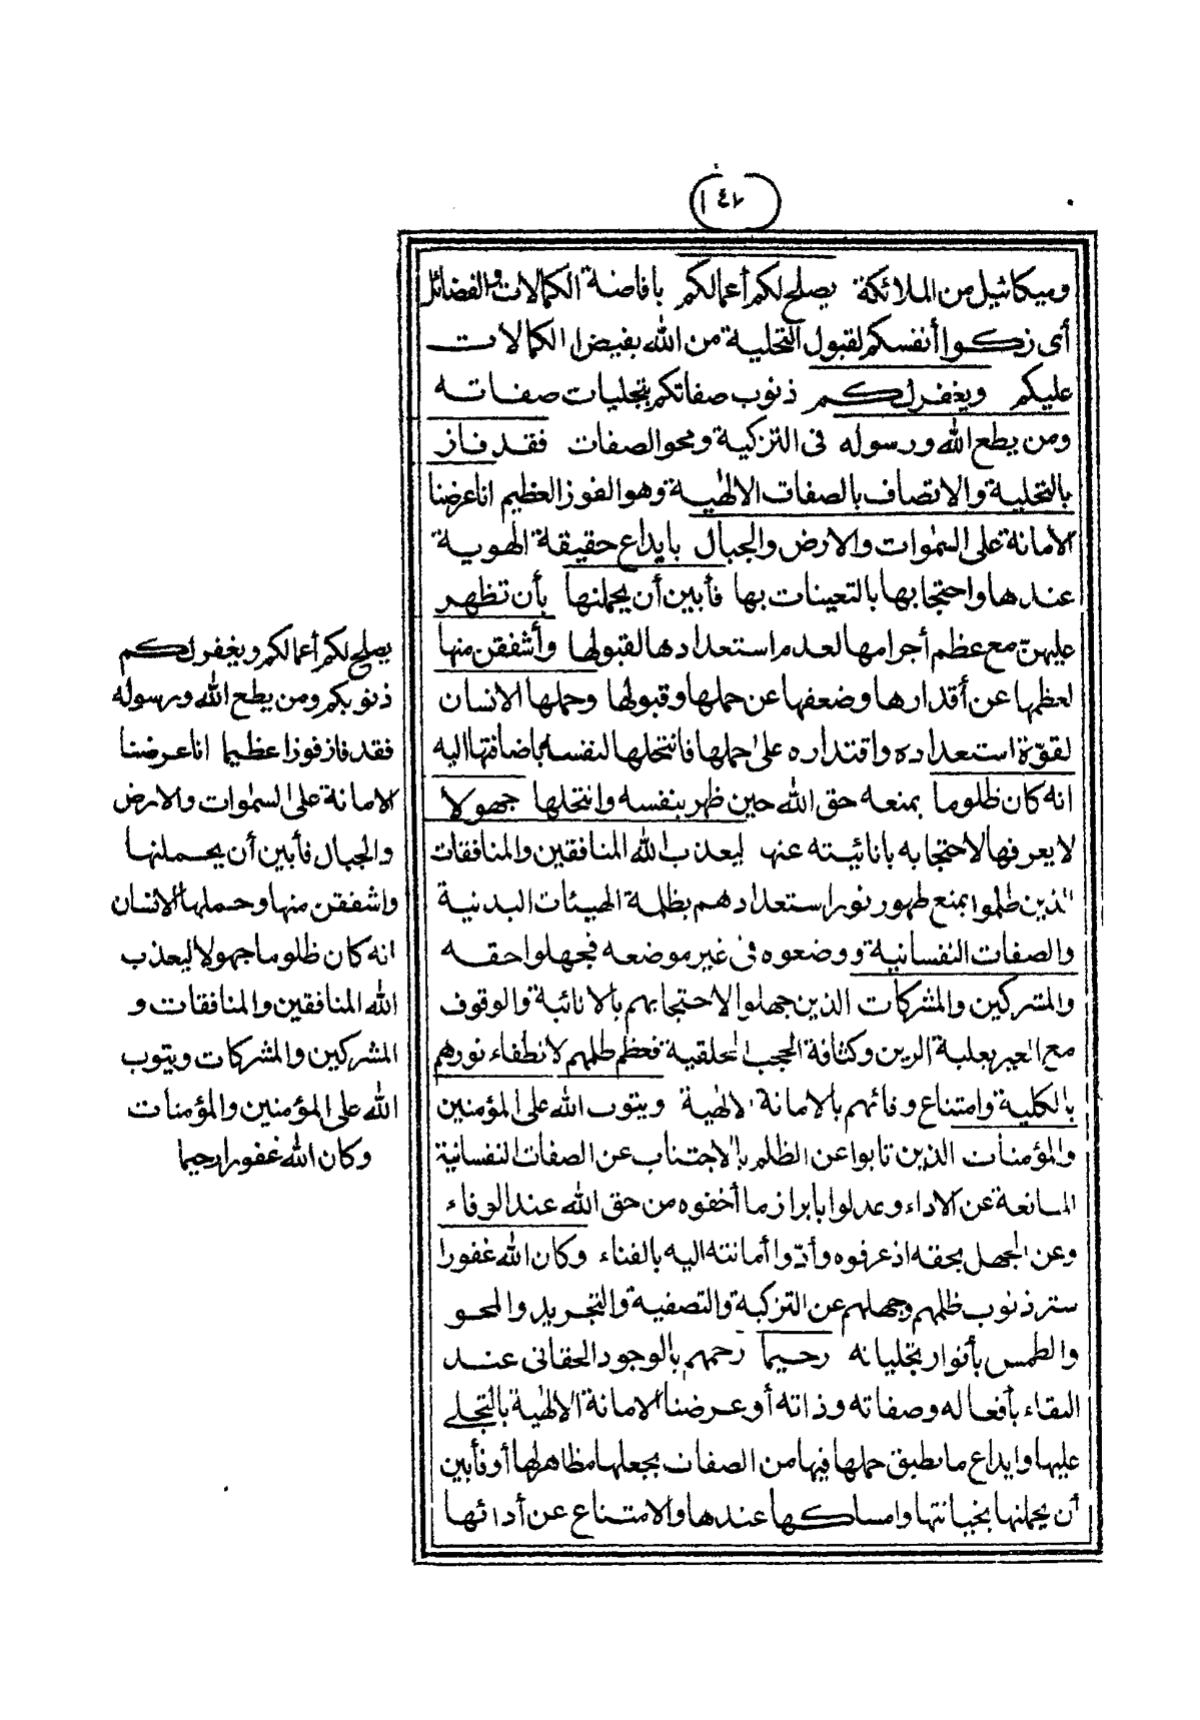 وميكائيل من الملائكة يصلح لكم أعمالكم بافاضة الكمالات والفضائل
أى زكوا أنفسكم لقبول التحلية من الله بفيض الكمالات
عليكم ويغفر لكم ذنوب صفاتكم بتجليات صفاته
ومن يطع الله ورسوله فى التزكية ومحو الصفات فقد فاز
بالتحلية والاتصاف بالصفات الالهية وهو الفوز العظيم انا عرضنا
الامانة على السموات والارض والجبال بايداع حقيقة الهوية
عندها واحتجابها بالتعينات بها فأبين أن يحملنها بأن تظهر
عليهنّ مع عظم أجرامها لعدم استعدادها لقبولها وأشفقن منها
لعظمها عن أقدارها وضعفها عن حملها وقبولها وحملها الانسان
لقوّة استعداده واقتداره على حملها فانتحلها لنفسه باضافتها اليه
انه كان ظلوما بمنعه حق الله حين ظهر بنفسه وانتحلها جهولا
لا يعرفها لاحتجابه بانائيته عنها ليعذب الله المنافقين والمنافقات
الذين ظلموا بمنع ظهور نور استعدادهم بظلمة الهيئات البدنية
والصفات النفسانية ووضعوه فى غير موضعه فجهلوا حقه
والمشركين والمشركات الذين جهلوا لاحتجابهم بالانائية والوقوف
مع الغير بغلبة الرين وكثافة الحجب الخلقية فعظم ظلمهم لانطفاء نورهم
بالكلية وامتناع وفائهم بالامانة الالهية ويتوب الله على المؤمنين
والمؤمنات الذين تابوا عن الظلم بالاجتناب عن الصفات النفسانية
المانعة عن الاداء وعدلوا بابراز ما أخفوه من حق الله عند الوفاء
وعن الجهل بحقه اذ عرفوه وأدّوا أمانته اليه بالفناء وكان الله غفورا
ستر ذنوب ظلمهم وجهلهم عن التزكية والتصفية والتجريد والمحو
والطمس بأنوار تجلياته رحيما رحمهم بالوجود الحقانى عند
البقاء بأفعاله وصفاته وذاته أو عرضنا الامانة الالهية بالتجلى
عليها وايداع ما تطيق حملها فيها من الصفات بجعلها مظاهر لها أو فأبين
أن يحملنها بخيانتها وامساكها عندها والامتناع عن أدائها
يصلح لكم أعمالكم ويغفر لكم
ذنوبكم ومن يطع الله ورسوله
فقد فاز فوزا عظيما انا عرضنا
الامانة على السموات والارض
والجبال فأبين أن يحملنها
واشفقن منها وحملها الانسان
انه كان ظلوما جهولا ليعذب
الله المنافقين والمنافقات و
المشركين والمشركات ويتوب
الله على المؤمنين والمؤمنات
وكان الله غفورا رحيما